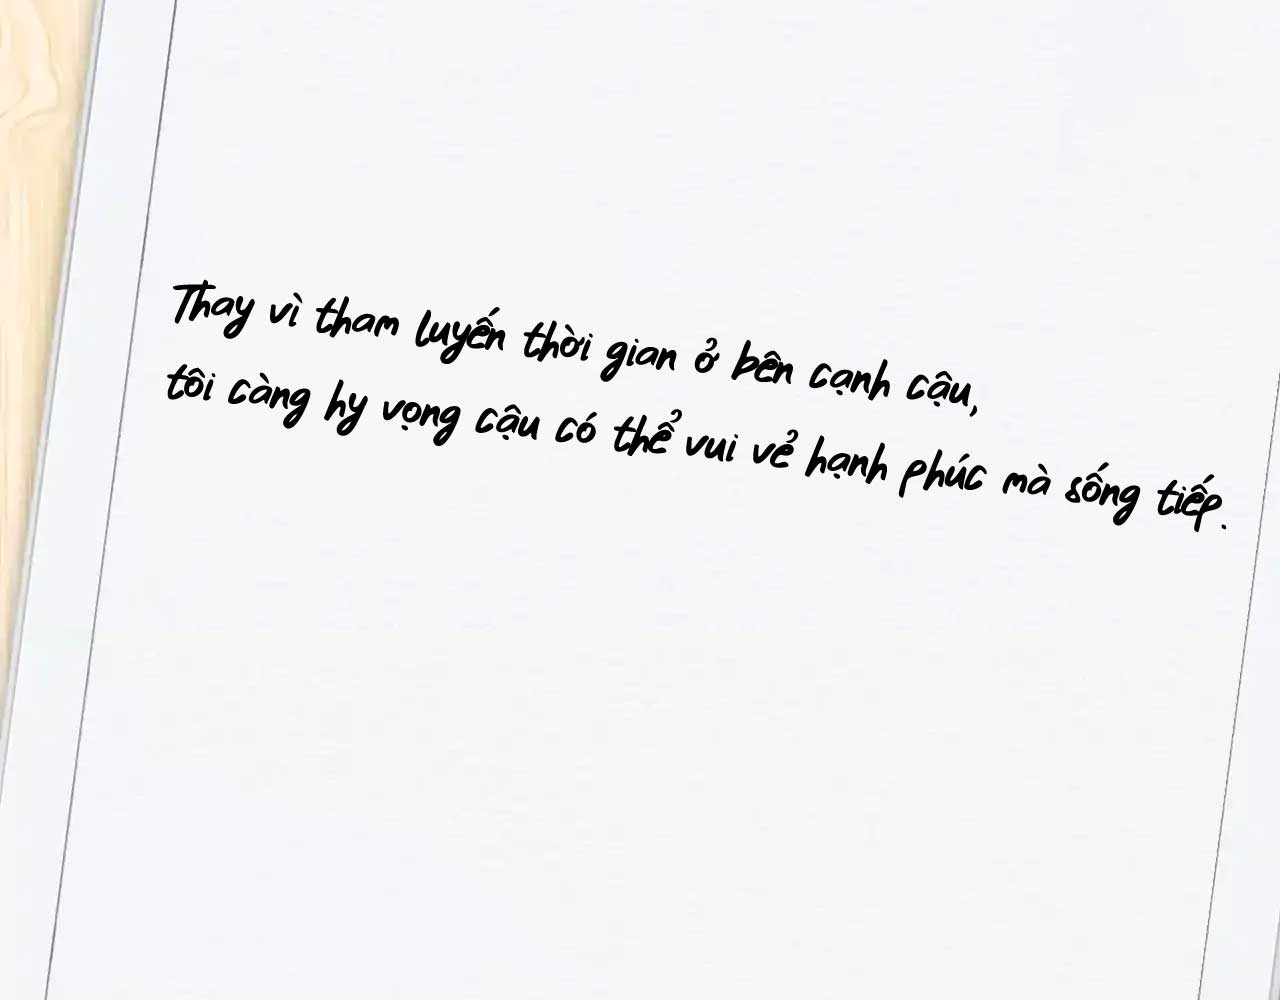 Thay vì tham luyến thời gian ở bên cạnh cậu,
tôi càng hy vọng cậu có thể vui vẻ hạnh phúc mà sống tiếp.